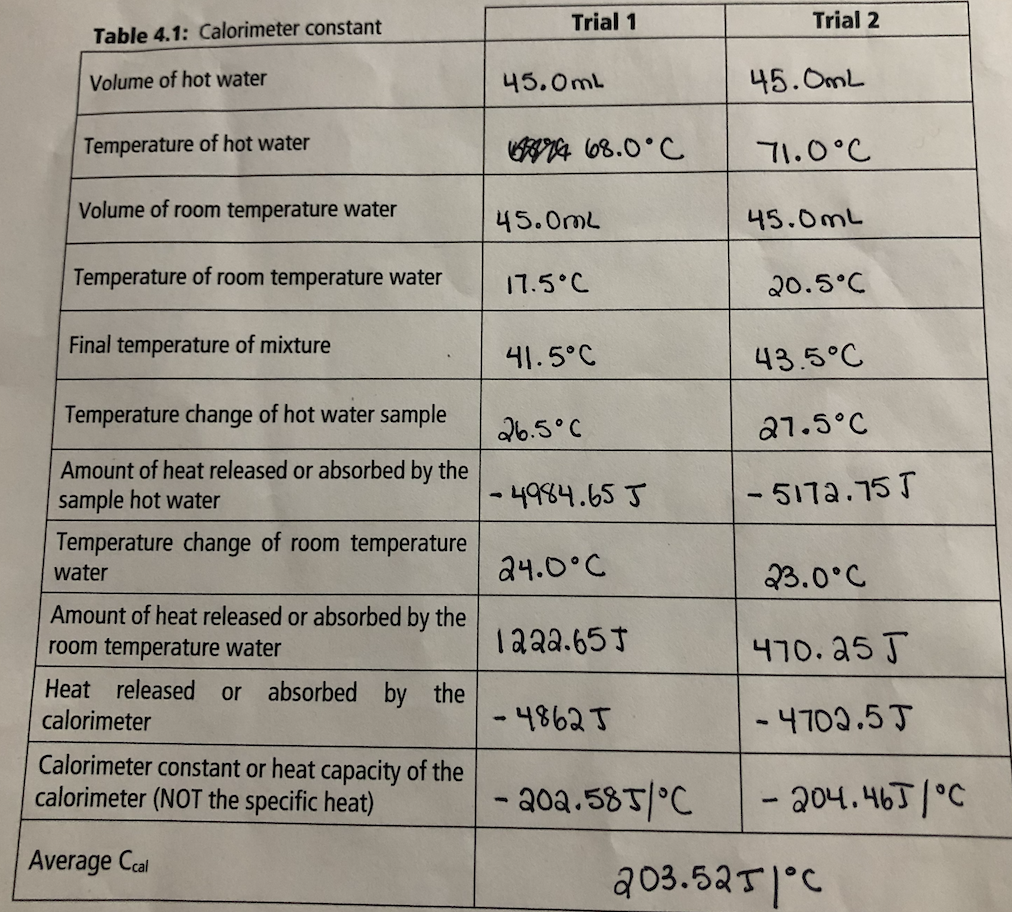 Table 4.1: Calorimeter constant Trial 1 Trial 2
Volume of hot water 45.0mL 45.0mL
Temperature of hot water 68.0°C 71.0°C
Volume of room temperature water 45.0mL 45.0mL
Temperature of room temperature water 17.5°C 20.5°C
Final temperature of mixture 41.5°C 43.5°C
Temperature change of hot water sample 26.5°C 27.5°C
Amount of heat released or absorbed by the
sample hot water -4984.65 J -5172.75 J
Temperature change of room temperature
water 24.0°C 23.0°C
Amount of heat released or absorbed by the
room temperature water 1222.65J 470.25 J
Heat released or absorbed by the
calorimeter -4862 J -4702.5 J
Calorimeter constant or heat capacity of the
calorimeter (NOT the specific heat) -202.58J/°C -204.46J/°C
Average Ccal 203.52J/°C